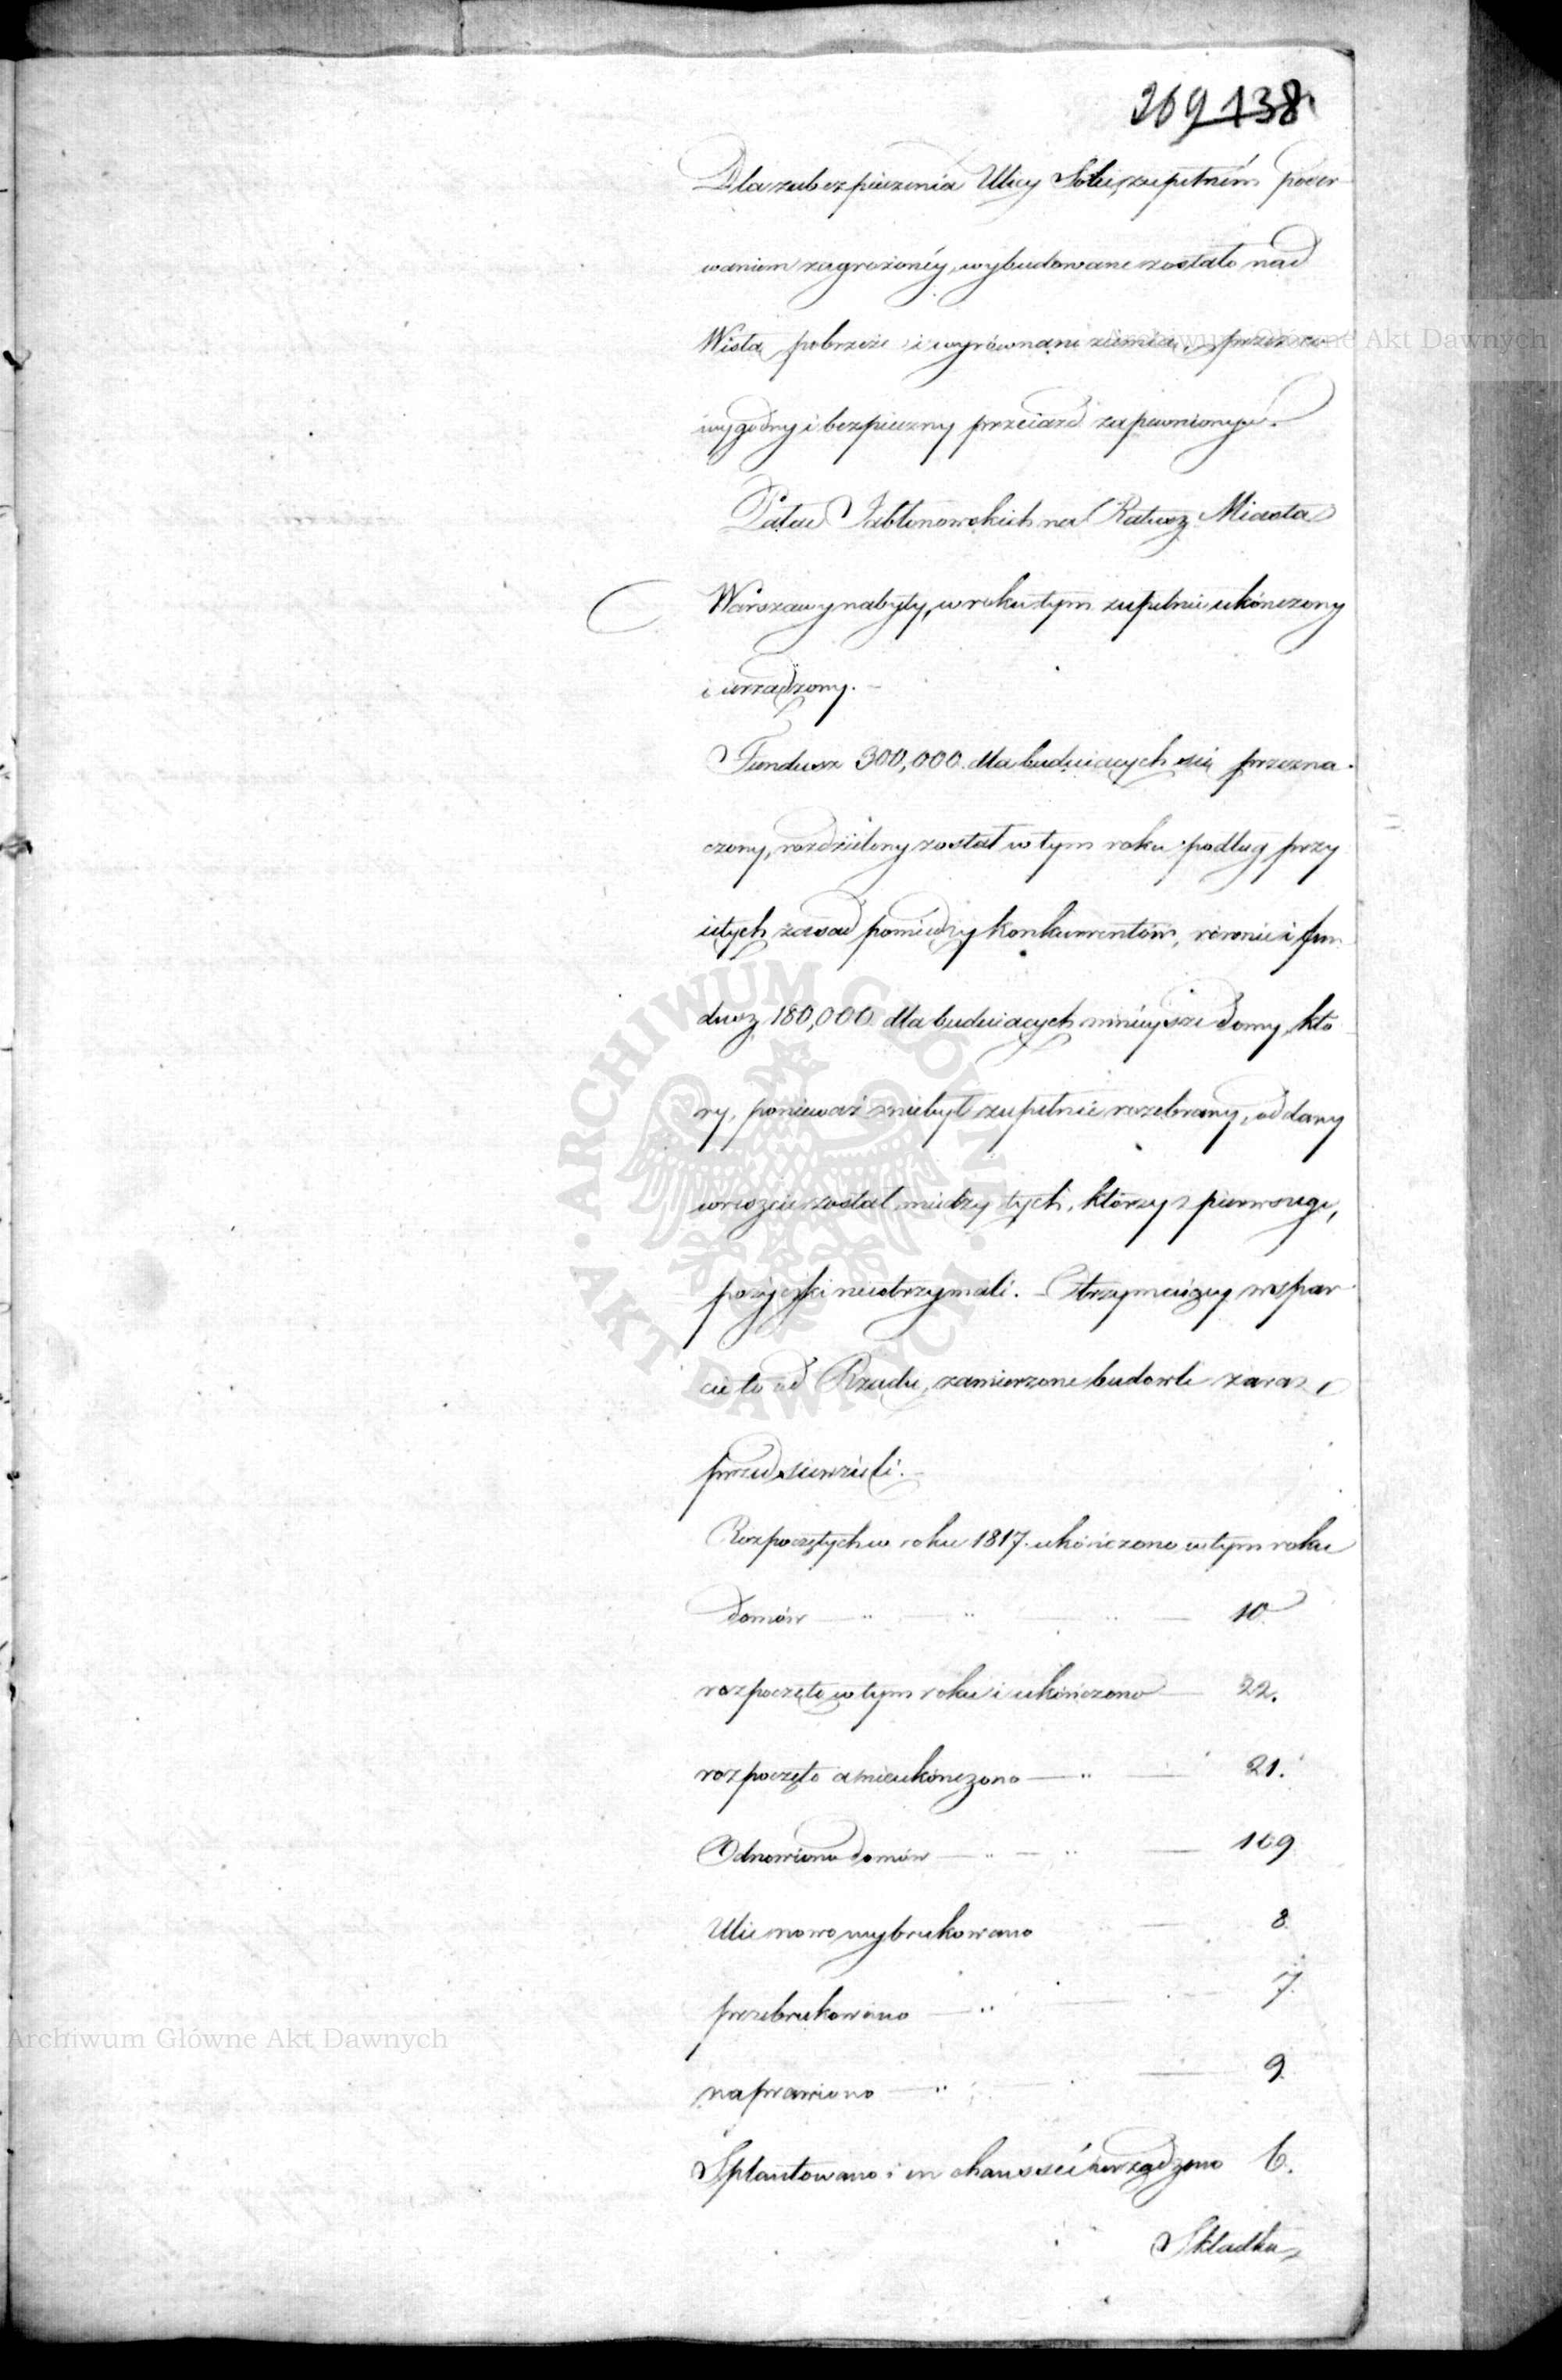 269 138
Dla zabezpieczenia Ulicy Solec, zupełném poder-
waniem zagrożonéy, wybudowane zostało nad
Wisłą pobrzeże i wyrównane ziemią, przez co
wygodny i bezpieczny przeiazd zapewniony
Pałac Jabłonowskich na Ratusz Miasta
Warszawy nabyty, w roku tym zupełnie ukończony
i urządzony. –
Fundusz 300,000 dla buduiących się przezna-
czony, rozdzielony został w tym roku podług przy
iętych zasad pomiędzy konkurrentów, równie i fun
dusz 180,000 dla buduiących mnieysze domy, któ
ry, ponieważ niebył zupełnie rozebrany, oddany
wreszcie został między tych, którzy z pierwszego,
pożyczki nieotrzymali. – Otrzymuiący wspar-
cie to od Rządu, zamierzone budowle zaraz
przedsięwzięli. –
Rozpoczętych w roku 1817. ukończono w tym roku
domów — „ — „ — „ — 10
rozpoczęto w tym roku i ukończono — 22.
rozpoczęto a nieukończono — „ — 21.
Odnowiono domów — „ — „ — 109
Ulic nowo wybrukowano — 8
przebrukowano — „ — 7.
naprawiono — „ — 9
Splantowano i en chaussée urządzono 6.
Składka
Archiwum Główne Akt Dawnych
ARCHIWUM GŁÓWNE AKT DAWNYCH
Archiwum Główne Akt Dawnych